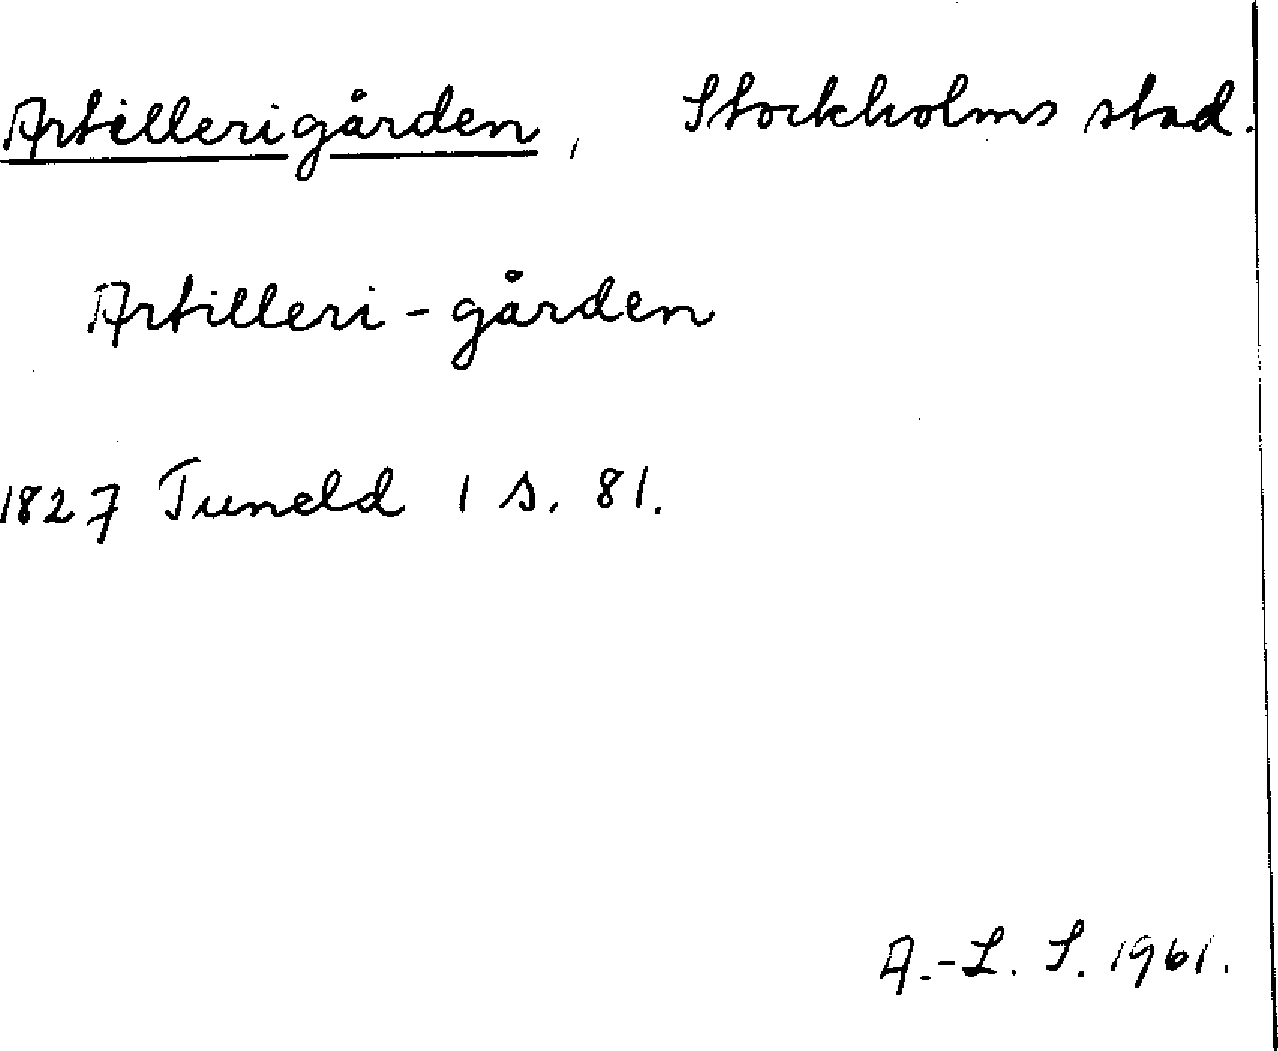 Artillerigården, Stockholms stad.
Artilleri-gården
1827 Tuneld 1 s. 81.
A.-L. S. 1961.